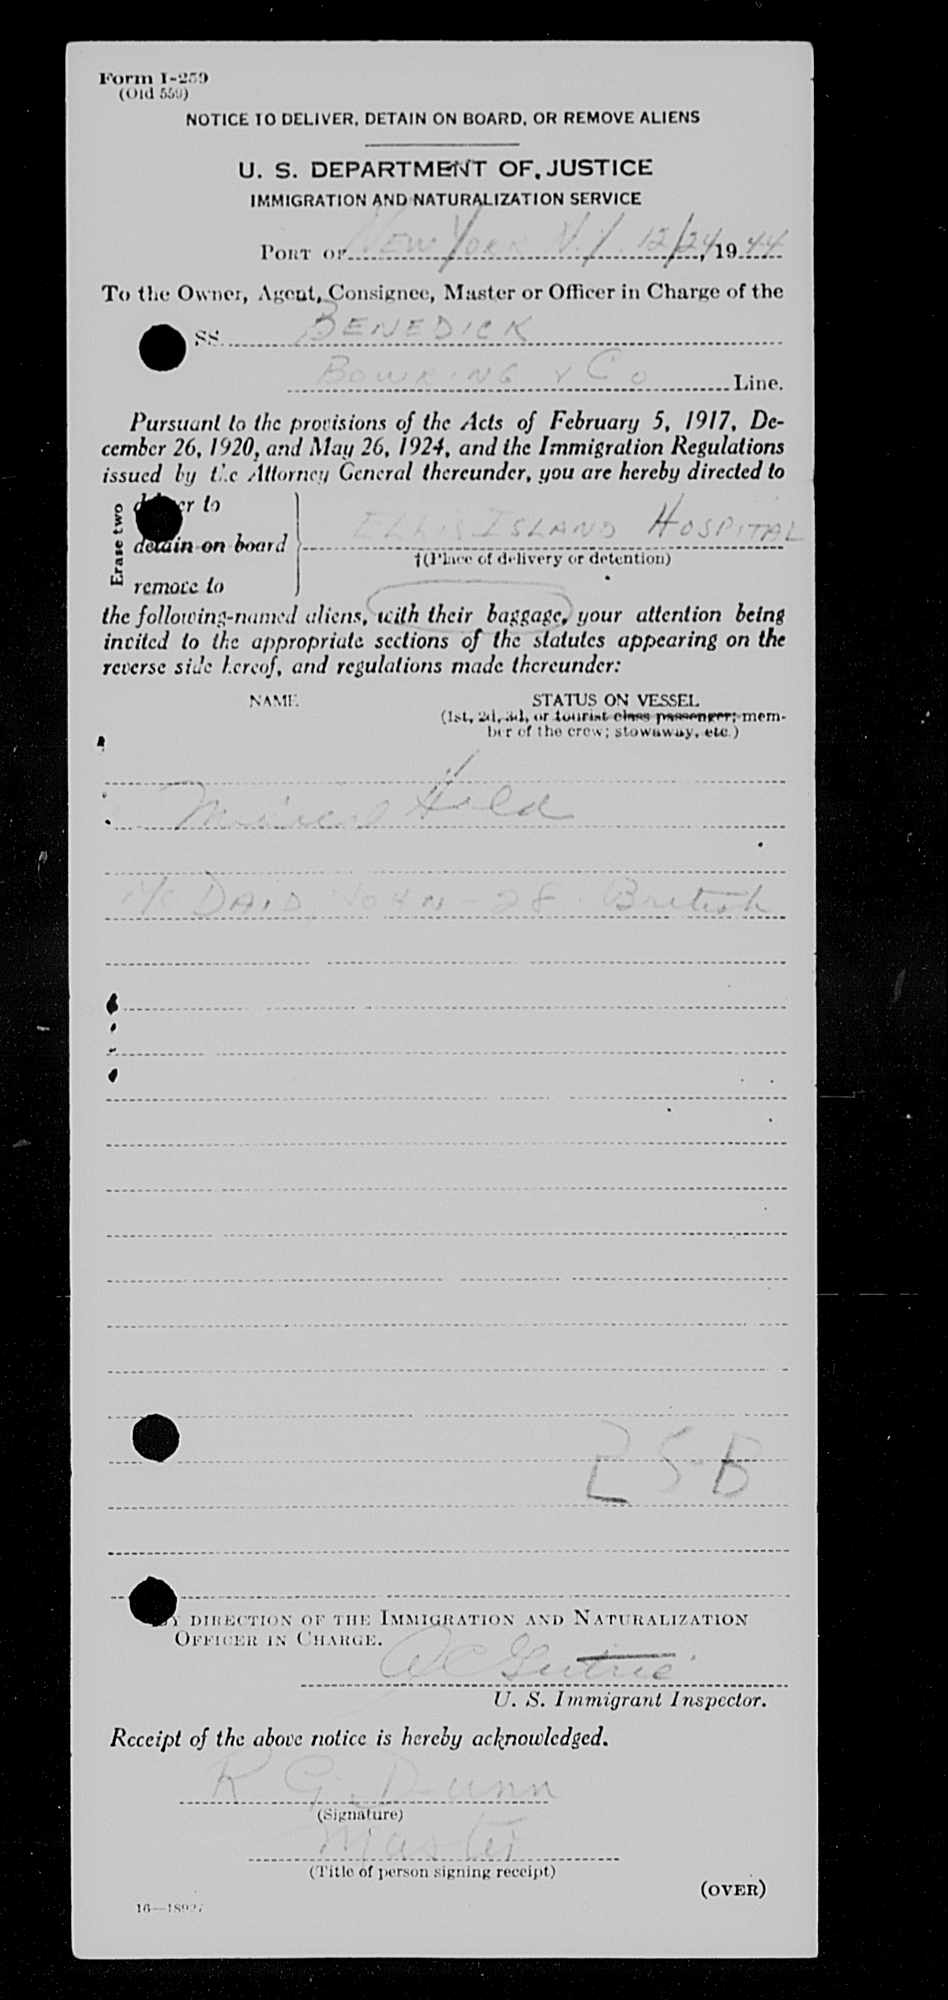 Form I-259
(Old 559)
NOTICE TO DELIVER, DETAIN ON BOARD, OR REMOVE ALIENS
U. S. DEPARTMENT OF JUSTICE
IMMIGRATION AND NATURALIZATION SERVICE
PORT OF NEW YORK N.Y. 12/24, 1944
To the Owner, Agent, Consignee, Master or Officer in Charge of the
SS. BENEDICK
BOWRING & CO Line.
Pursuant to the provisions of the Acts of February 5, 1917, De-
cember 26, 1920, and May 26, 1924, and the Immigration Regulations
issued by the Attorney General thereunder, you are hereby directed to
Erase two
deliver to
detain on board ELLIS ISLAND HOSPITAL
†(Place of delivery or detention)
remove to
the following-named aliens, with their baggage, your attention being
invited to the appropriate sections of the statutes appearing on the
reverse side hereof, and regulations made thereunder:
NAME STATUS ON VESSEL
(1st, 2d, 3d, or tourist class passenger; mem-
ber of the crew; stowaway, etc.)
Medical Hold
McDAID, JOHN - 28 British
25-B
BY DIRECTION OF THE IMMIGRATION AND NATURALIZATION
OFFICER IN CHARGE.
U. S. Immigrant Inspector.
Receipt of the above notice is hereby acknowledged.
R G. Dunn
(Signature)
Master
(Title of person signing receipt)
(OVER)
16—18927